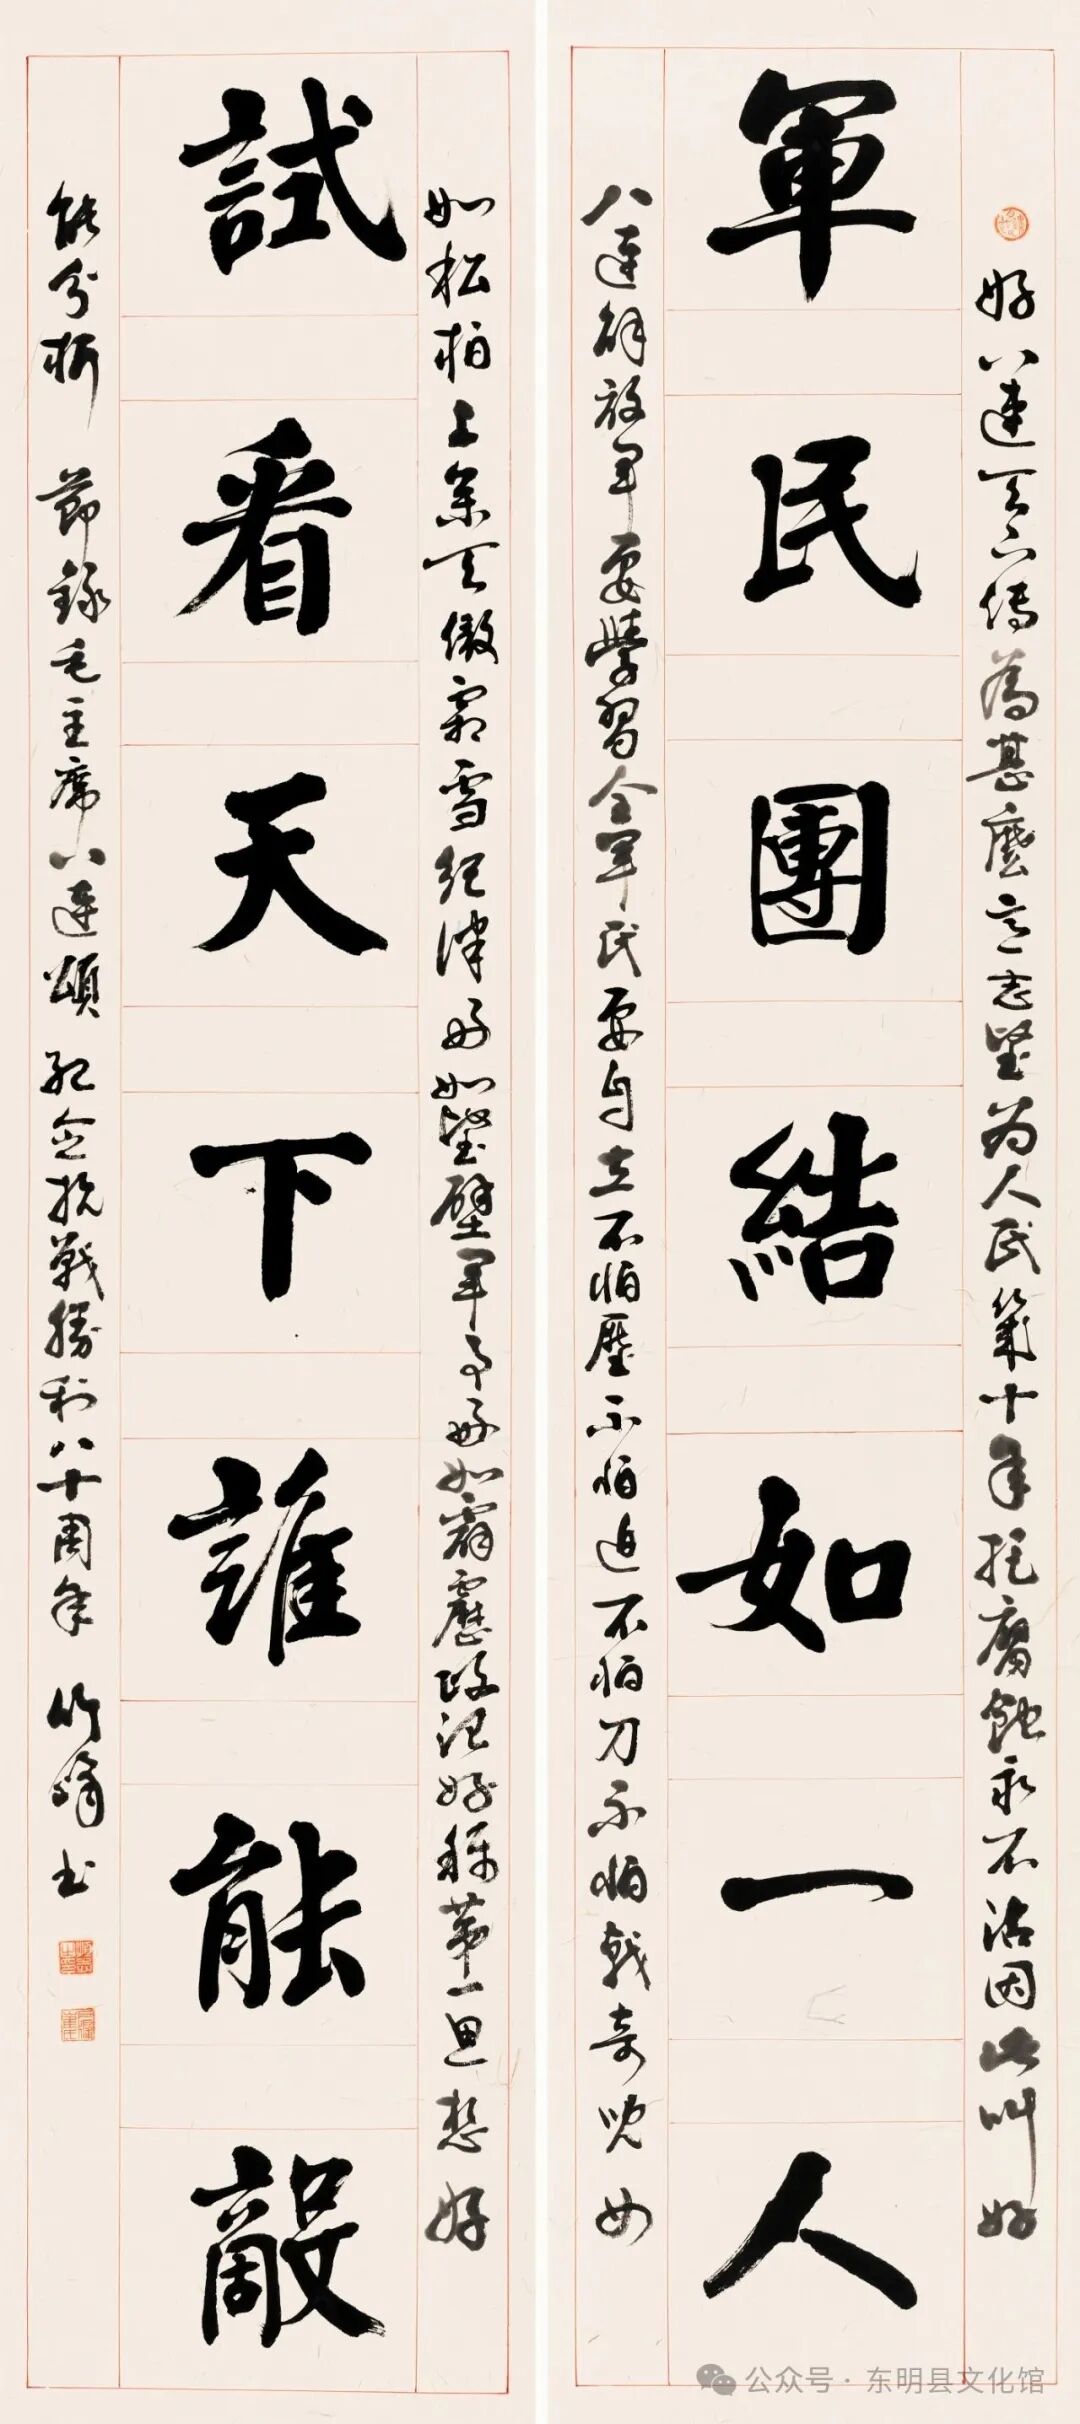 好八連天下傳為甚麼意志堅为人民幾十年拒腐蝕永不沾因此叫好
軍民團結如一人
八連解放軍要學習全軍民要自立不怕壓不怕迫不怕刀不怕戟奇兒女
如松柏上參天傲霜雪紀律好如堅壁軍事好如霹靂政治好稱第一思想好
試看天下誰能敵
能分析 節錄毛主席八連頌 紀念抗戰勝利八十周年 竹書
公众号·东明县文化馆